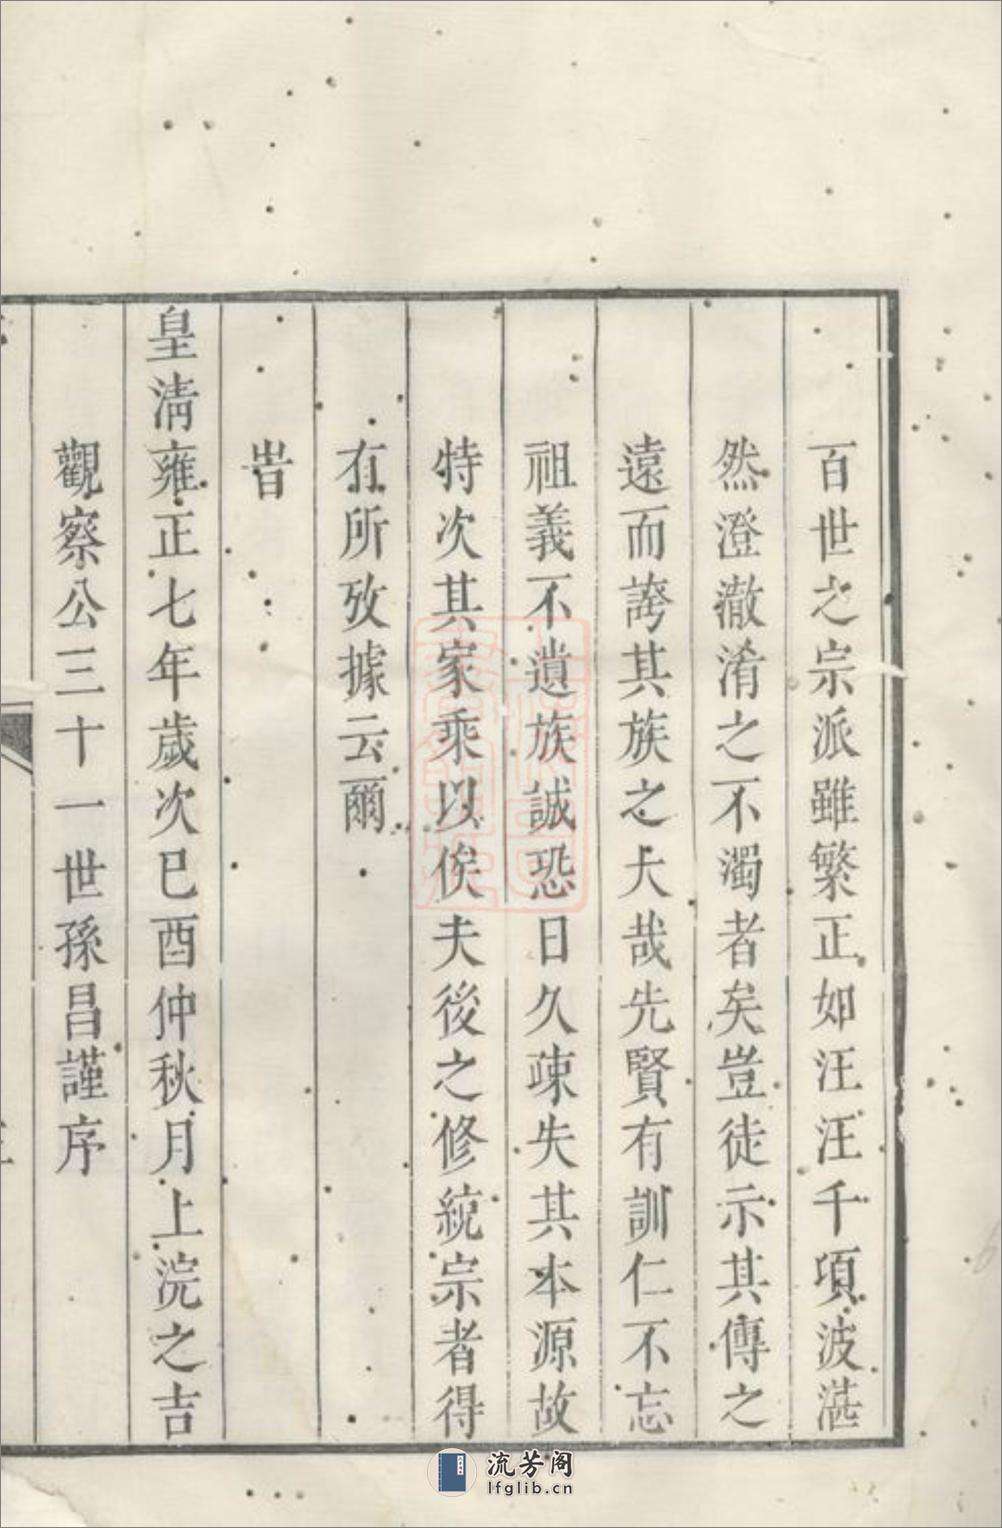 百世之宗派雖繁正如汪汪千項波湛
然澄澈淆之不濁者矣豈徒示其傳之
遠而誇其族之大哉先賢有訓仁不忘
祖義不遺族誠恐日久疎失其本源故
特次其家乘以俟夫後之修統宗者得
有所攷據云爾
旹
皇清雍正七年歲次已酉仲秋月上浣之吉
觀察公三十一世孫昌謹序
流芳阁
lfglib.cn